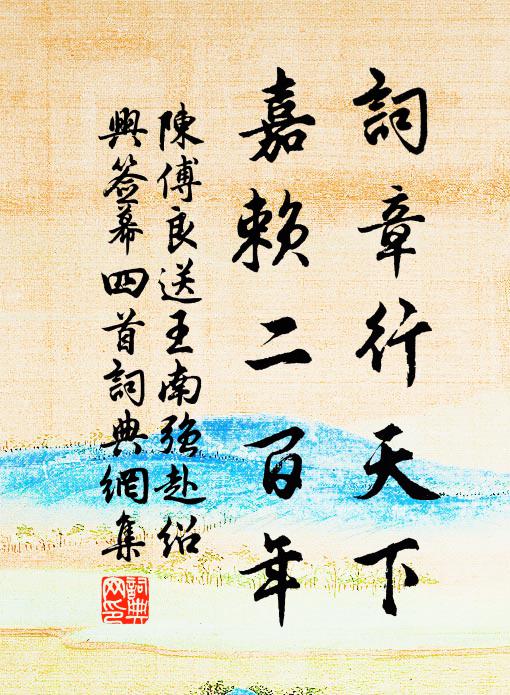 詞章行天下
嘉賴二百年
陳傅良送王南強赴紹
興簽幕四首詞典網集